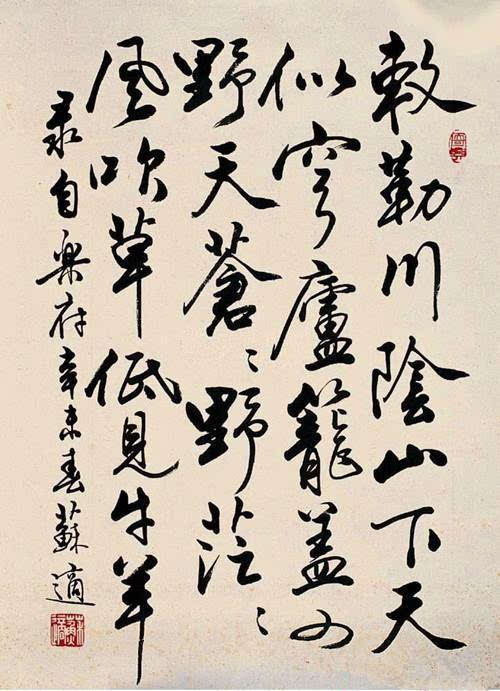 敕勒川陰山下天
似穹廬籠蓋四
野天蒼々野茫々
風吹草低見牛羊
录自楽府辛未春蘇適